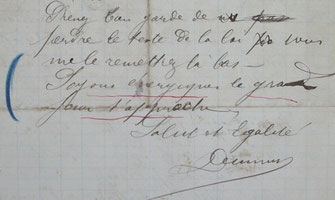 Prenez bien garde de ne pas
perdre le texte de la loi vous
me le remettrez la bas —
Soyons energiques le grand
jour s'approche
Salut et Egalité